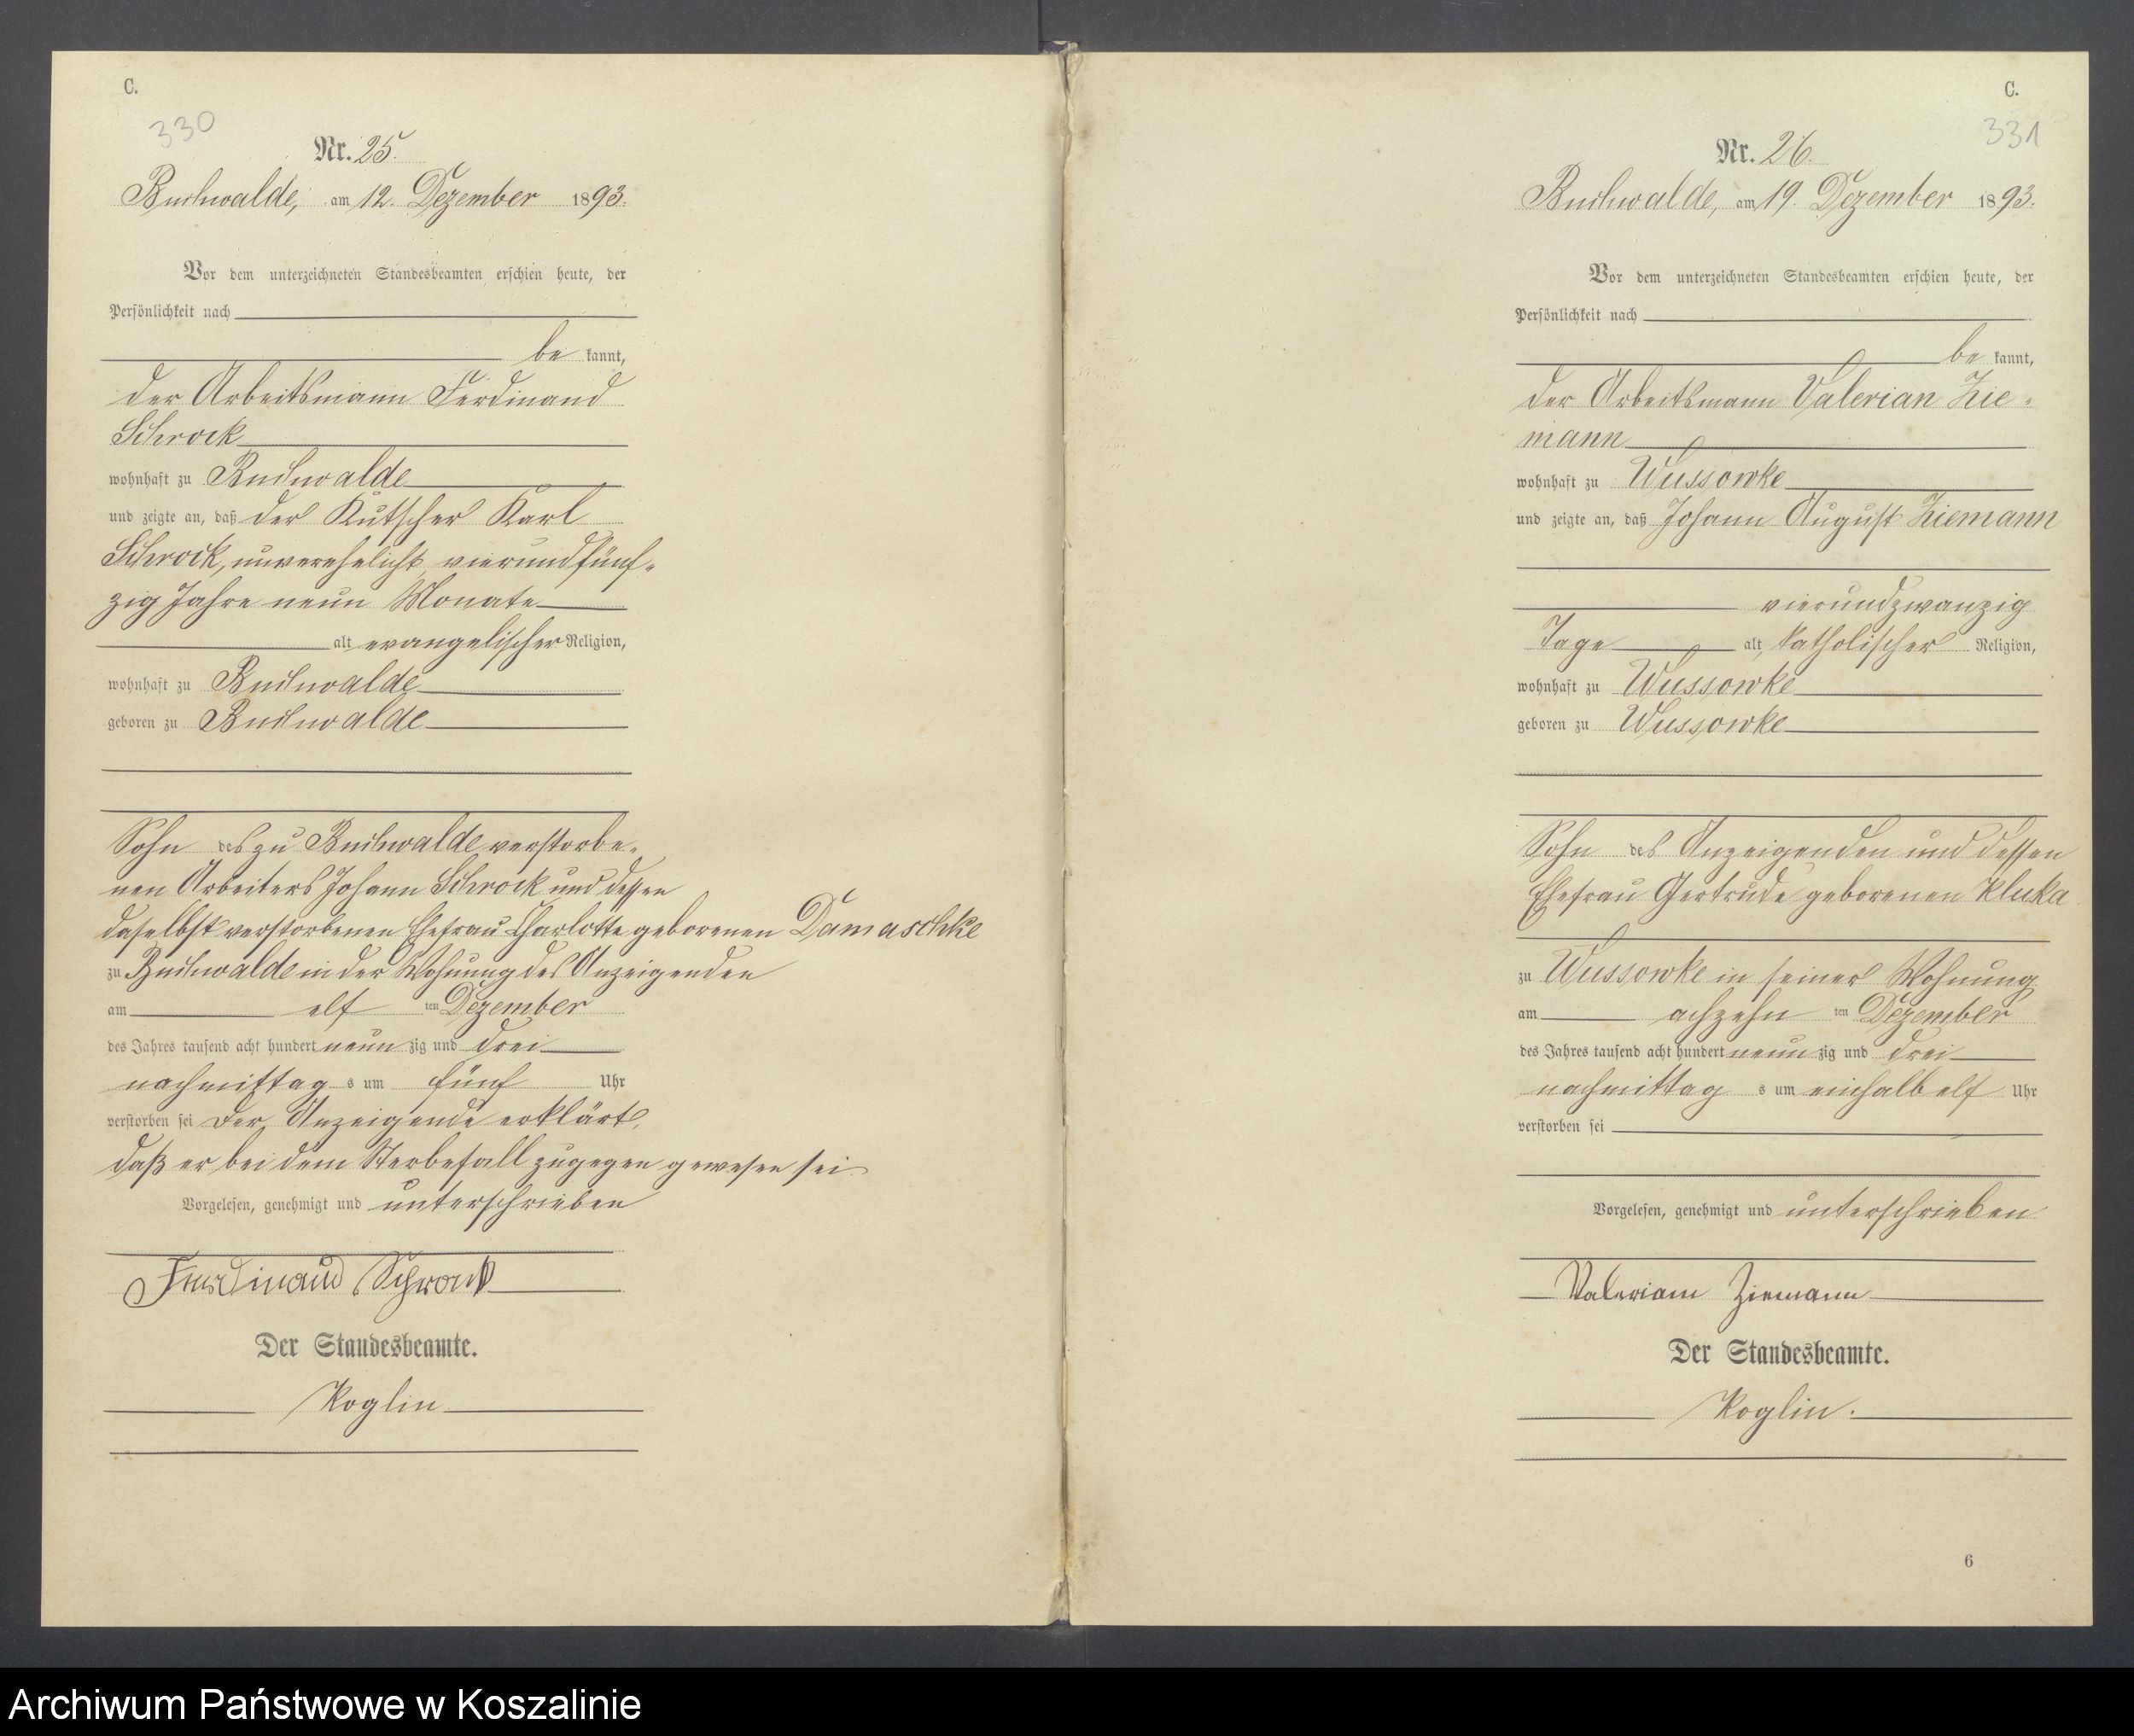 C.
330
Nr. 25.
Buchwalde, am 12. Dezember 1893.
Vor dem unterzeichneten Standesbeamten erschien heute, der
Persönlichkeit nach
be kannt,
der Arbeitsmann Ferdinand
Schrock
wohnhaft zu Buchwalde
und zeigte an, daß der Kutscher Karl
Schrock, unverehelicht, vierundfünf-
zig Jahre neun Monate
alt, evangelischer Religion,
wohnhaft zu Buchwalde
geboren zu Buchwalde
Sohn des zu Buchwalde verstorbe-
nen Arbeiters Johann Schrock und dessen
daselbst verstorbenen Ehefrau Charlotte geborenen Damaschke
zu Buchwalde in der Wohnung des Anzeigenden
am elf ten Dezember
des Jahres tausend acht hundert neun zig und drei
nachmittag s um fünf Uhr
verstorben sei Der Anzeigende erklärt,
daß er bei dem Sterbefall zugegen gewesen sei
Vorgelesen, genehmigt und unterschrieben
Ferdinand Schrock
Der Standesbeamte.
Koglin
C.
331
Nr. 26.
Buchwalde, am 19. Dezember 1893.
Vor dem unterzeichneten Standesbeamten erschien heute, der
Persönlichkeit nach
be kannt,
der Arbeitsmann Valerian Zie-
mann
wohnhaft zu Wussowke
und zeigte an, daß Johann August Ziemann
vierundzwanzig
Tage alt, katholischer Religion,
wohnhaft zu Wussowke
geboren zu Wussowke
Sohn des Anzeigenden und dessen
Ehefrau Gertrude geborenen Kluka
zu Wussowke in seiner Wohnung
am achzehn ten Dezember
des Jahres tausend acht hundert neun zig und drei
nachmittag s um einhalb elf Uhr
verstorben sei
Vorgelesen, genehmigt und unterschrieben
Valerian Ziemann
Der Standesbeamte.
Koglin.
6
Archiwum Państwowe w Koszalinie